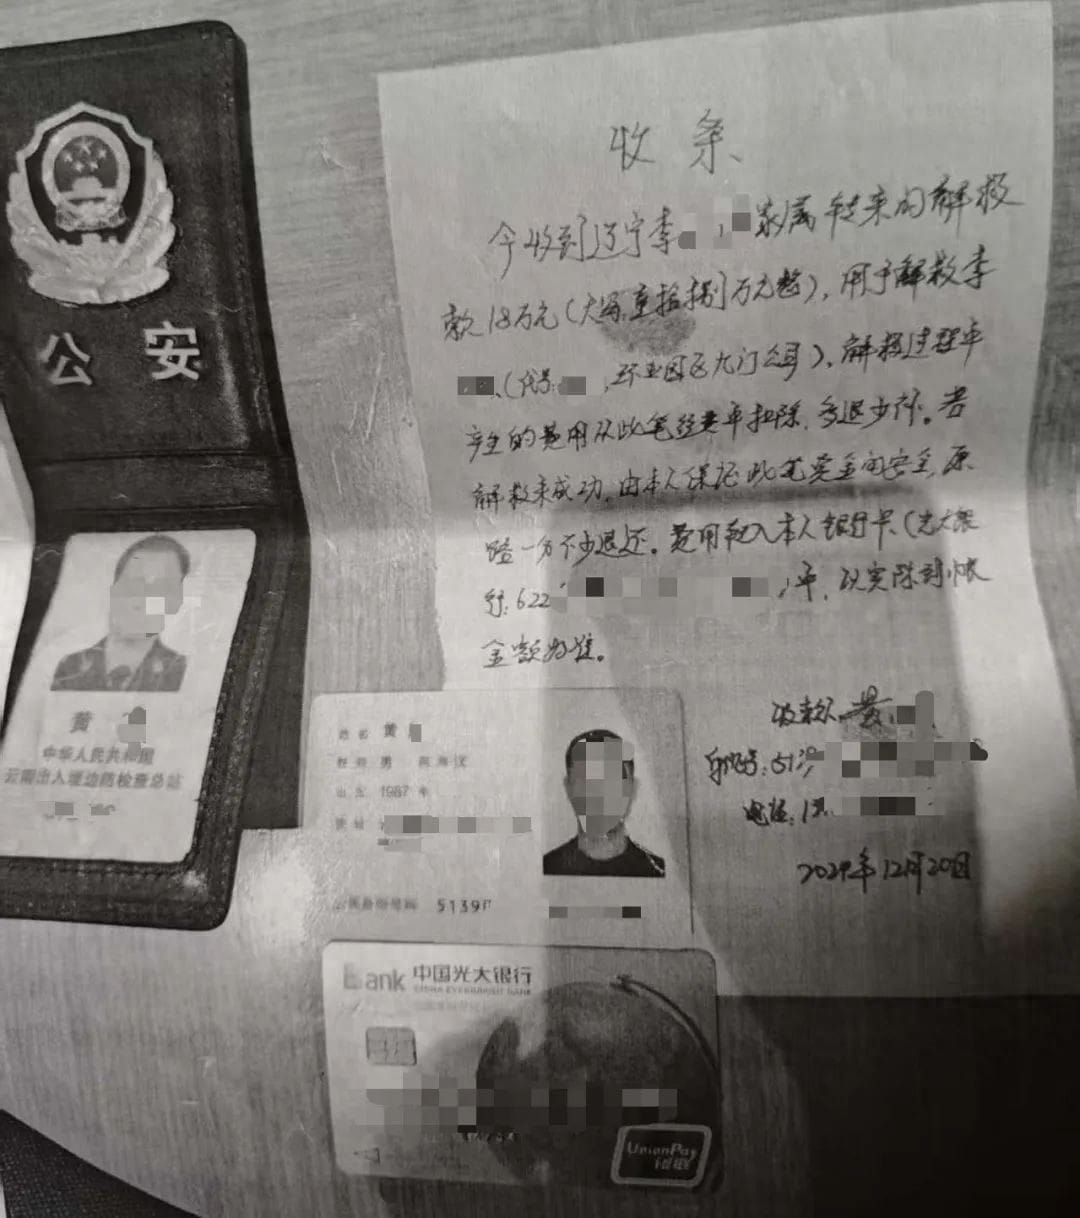 公安
黄
中华人民共和国
云南出入境边防检查总站
收条
今收到辽宁李 家属转来的解救
款18万元(大写:壹拾捌万元整),用于解救李
(代号: 园区九门公司),解救过程中
产生的费用从此笔经费中扣除,多退少补。若
解救未成功,由本人保证此笔资金的安全,原
路一分不少退还。费用转入本人银行卡(光大银
行:622 )中,以实际到帐
金额为准。
收款人:黄
身份证号:513
电话:1
2024年12月20日
姓名 黄
性别 男 民族 汉
出生 1987 年
公民身份号码 5139
Bank 中国光大银行
CHINA EVERBRIGHT BANK
UnionPay
银联